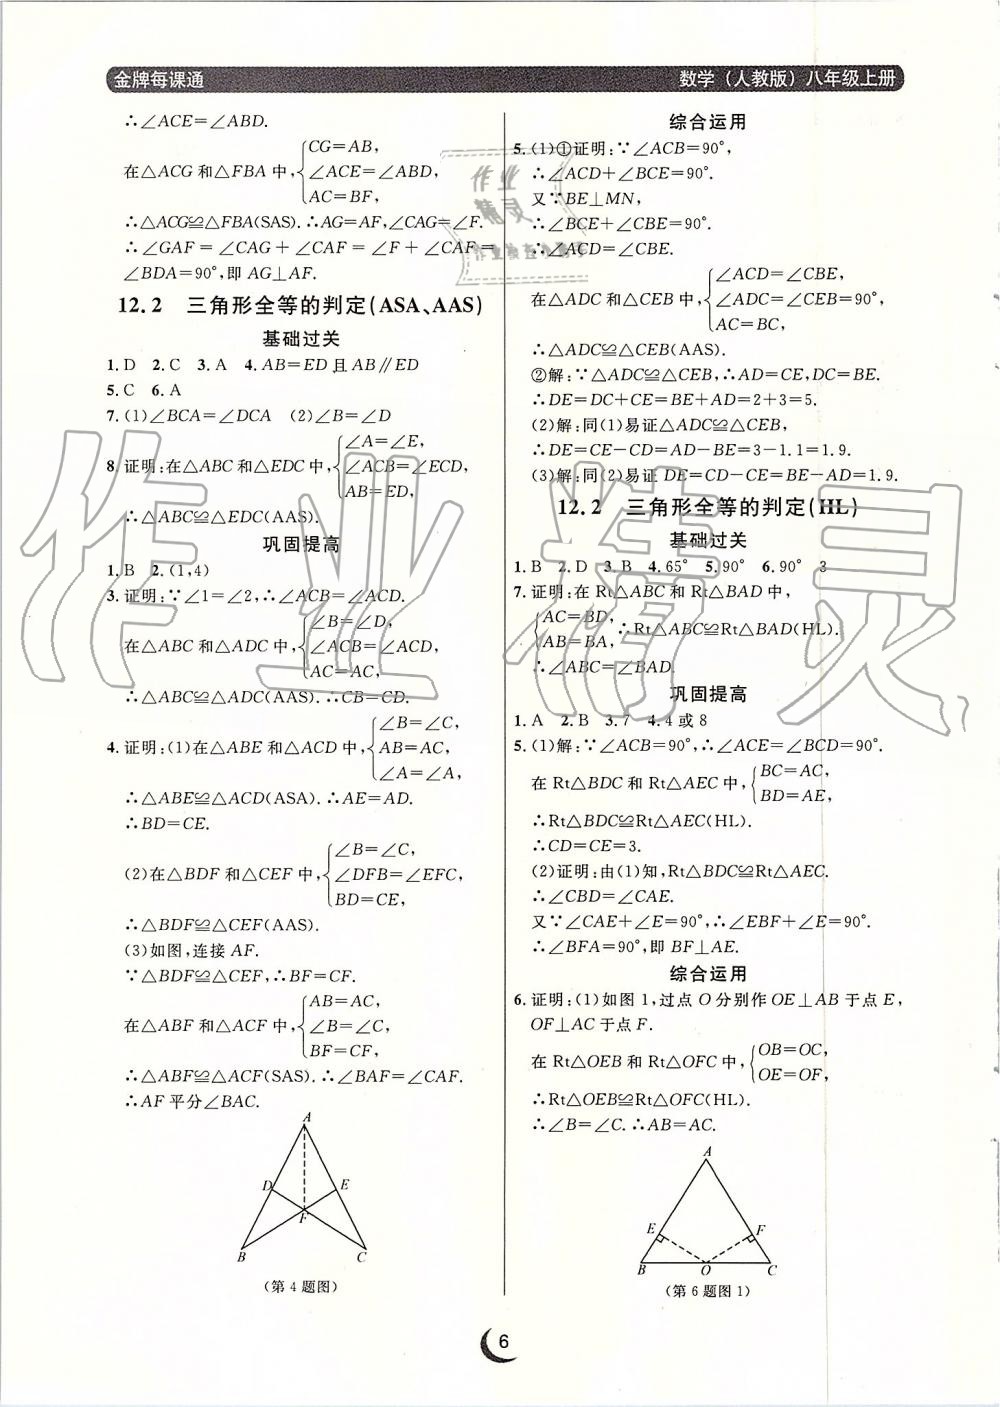 金牌每课通
数学(人教版)八年级上册
∴∠ACE=∠ABD.
CG=AB,
在△ACG 和△FBA 中, ∠ACE=∠ABD,
AC=BF,
∴△ACG≌△FBA(SAS).∴AG=AF,∠CAG=∠F.
∴∠GAF=∠CAG+∠CAF=∠F+∠CAF=
∠BDA=90°,即 AG⊥AF.
12.2 三角形全等的判定(ASA、AAS)
基础过关
1. D 2. C 3. A 4. AB=ED 且 AB∥ED
5. C 6. A
7. (1)∠BCA=∠DCA (2)∠B=∠D
∠A=∠E,
8. 证明:在△ABC 和△EDC 中, ∠ACB=∠ECD,
AB=ED,
∴△ABC≌△EDC(AAS).
巩固提高
1. B 2. (1,4)
3. 证明:∵∠1=∠2,∴∠ACB=∠ACD.
∠B=∠D,
在△ABC 和△ADC 中, ∠ACB=∠ACD,
AC=AC,
∴△ABC≌△ADC(AAS).∴CB=CD.
∠B=∠C,
4. 证明:(1)在△ABE 和△ACD 中, AB=AC,
∠A=∠A,
∴△ABE≌△ACD(ASA).∴AE=AD.
∴BD=CE.
∠B=∠C,
(2)在△BDF 和△CEF 中, ∠DFB=∠EFC,
BD=CE,
∴△BDF≌△CEF(AAS).
(3)如图,连接 AF.
∵△BDF≌△CEF,∴BF=CF.
AB=AC,
在△ABF 和△ACF 中, ∠B=∠C,
BF=CF,
∴△ABF≌△ACF(SAS).∴∠BAF=∠CAF.
∴AF 平分∠BAC.
A
D
E
F
B
C
(第 4 题图)
综合运用
5. (1)①证明:∵∠ACB=90°,
∴∠ACD+∠BCE=90°.
又∵BE⊥MN,
∴∠BCE+∠CBE=90°.
∴∠ACD=∠CBE.
∠ACD=∠CBE,
在△ADC 和△CEB 中, ∠ADC=∠CEB=90°,
AC=BC,
∴△ADC≌△CEB(AAS).
②解:∵△ADC≌△CEB,∴AD=CE,DC=BE.
∴DE=DC+CE=BE+AD=2+3=5.
(2)解:同(1)易证△ADC≌△CEB,
∴DE=CE-CD=AD-BE=3-1.1=1.9.
(3)解:同(2)易证 DE=CD-CE=BE-AD=1.9.
12.2 三角形全等的判定(HL)
基础过关
1. B 2. D 3. B 4. 65° 5. 90° 6. 90° 3
7. 证明:在 Rt△ABC 和 Rt△BAD 中,
AC=BD,
AB=BA, ∴Rt△ABC≌Rt△BAD(HL).
∴∠ABC=∠BAD.
巩固提高
1. A 2. B 3. 7 4. 4 或 8
5. (1)解:∵∠ACB=90°,∴∠ACE=∠BCD=90°.
BC=AC,
在 Rt△BDC 和 Rt△AEC 中,
BD=AE,
∴Rt△BDC≌Rt△AEC(HL).
∴CD=CE=3.
(2)证明:由(1)知,Rt△BDC≌Rt△AEC.
∴∠CBD=∠CAE.
又∵∠CAE+∠E=90°,∴∠EBF+∠E=90°.
∴∠BFA=90°,即 BF⊥AE.
综合运用
6. 证明:(1)如图 1,过点 O 分别作 OE⊥AB 于点 E,
OF⊥AC 于点 F.
OB=OC,
在 Rt△OEB 和 Rt△OFC 中,
OE=OF,
∴Rt△OEB≌Rt△OFC(HL).
∴∠B=∠C.∴AB=AC.
A
E
F
B
O
C
(第 6 题图 1)
6
作业精灵
作业
精灵